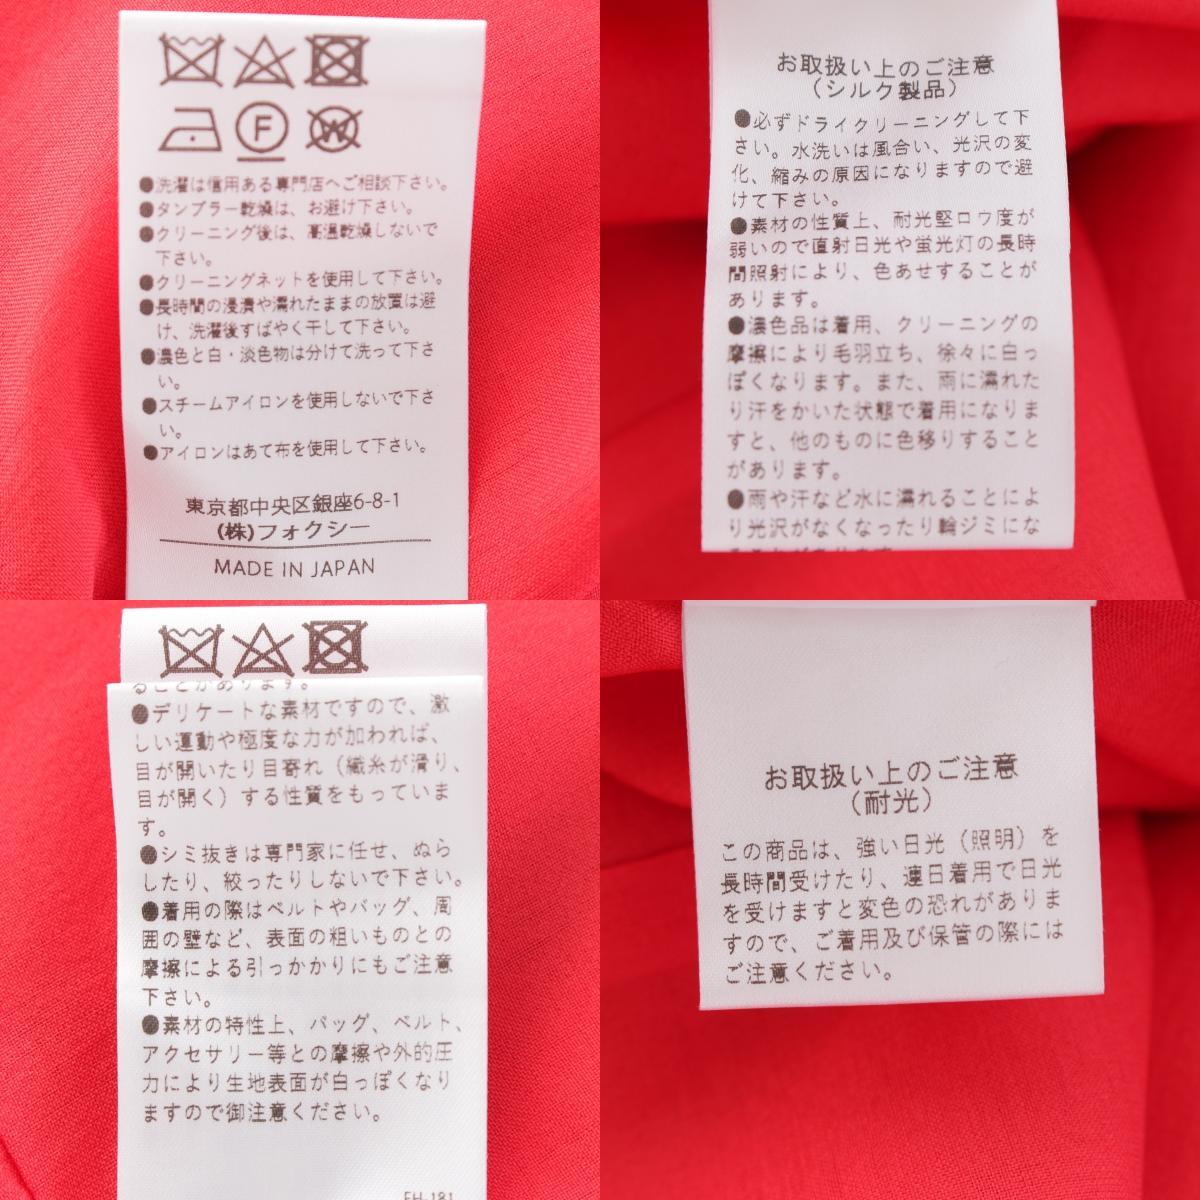 F
W
●洗濯は信用ある専門店へご相談下さい。
●タンブラー乾燥は、お避け下さい。
●クリーニング後は、高温乾燥しないで
下さい。
●クリーニングネットを使用して下さい。
●長時間の浸漬や濡れたままの放置は避
け、洗濯後すばやく干して下さい。
●濃色と白・淡色物は分けて洗って下さ
い。
●スチームアイロンを使用しないで下さ
い。
●アイロンはあて布を使用して下さい。
東京都中央区銀座6-8-1
(株)フォクシー
MADE IN JAPAN
お取扱い上のご注意
（シルク製品）
●必ずドライクリーニングして下
さい。水洗いは風合い、光沢の変
化、縮みの原因になりますので避
けて下さい。
●素材の性質上、耐光堅ロウ度が
弱いので直射日光や蛍光灯の長時
間照射により、色あせすることが
あります。
●濃色品は着用、クリーニングの
摩擦により毛羽立ち、徐々に白っ
ぽくなります。また、雨に濡れた
り汗をかいた状態で着用になりま
すと、他のものに色移りすること
があります。
●雨や汗など水に濡れることによ
り光沢がなくなったり輪ジミにな
ることがあります。
ることがあります。
●デリケートな素材ですので、激
しい運動や極度な力が加われば、
目が開いたり目寄れ（織糸が滑り、
目が開く）する性質をもっていま
す。
●シミ抜きは専門家に任せ、ぬら
したり、絞ったりしないで下さい。
●着用の際はベルトやバッグ、周
囲の壁など、表面の粗いものとの
摩擦による引っかかりにもご注意
下さい。
●素材の特性上、バッグ、ベルト、
アクセサリー等との摩擦や外的圧
力により生地表面が白っぽくなり
ますので御注意ください。
FH-181
お取扱い上のご注意
（耐光）
この商品は、強い日光（照明）を
長時間受けたり、連日着用で日光
を受けますと変色の恐れがありま
すので、ご着用及び保管の際には
ご注意ください。